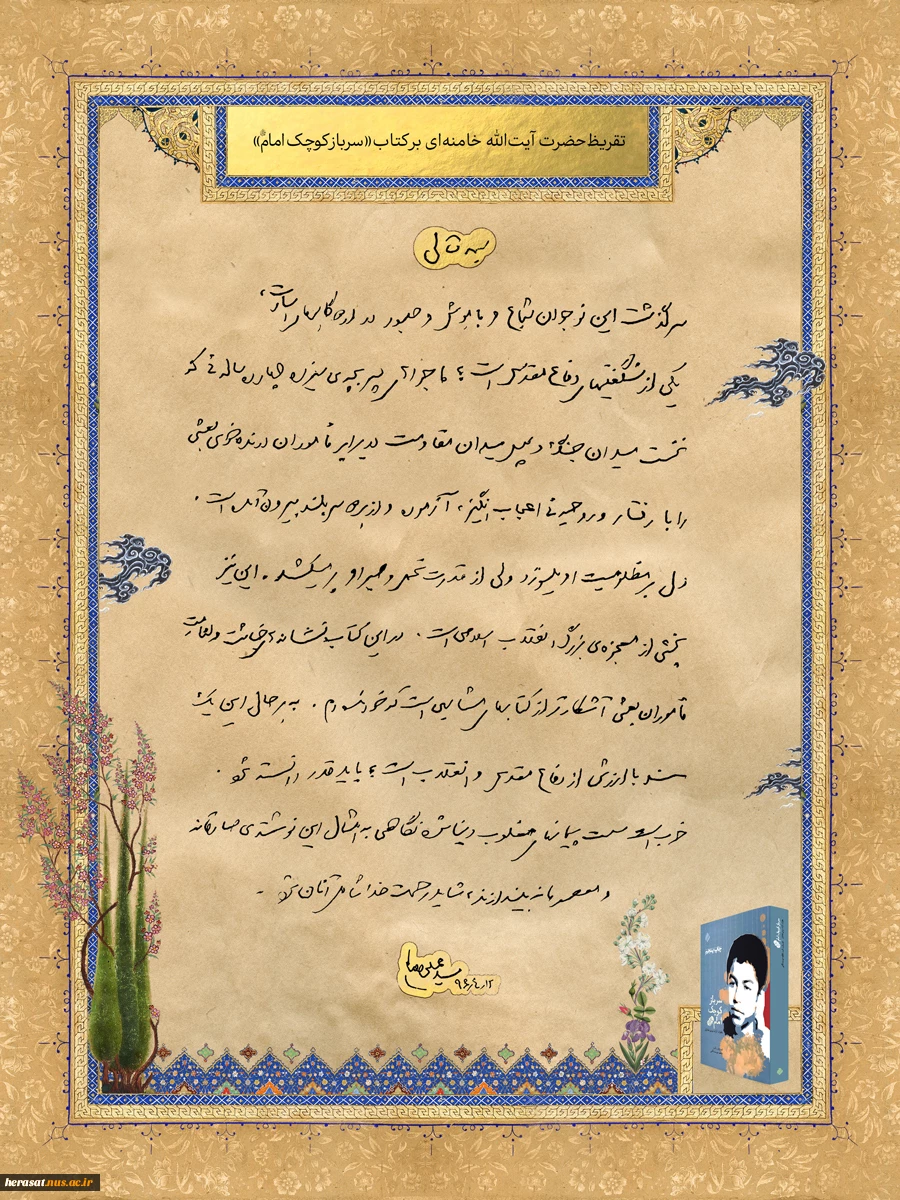 تقریظ حضرت آیت‌الله خامنه‌ای بر کتاب «سرباز کوچک امام(ره)»
بسمه تعالی
سرگذشت این نوجوان شجاع و باهوش و صبور در اردوگاههای اسارت،
یکی از شگفتیهای دفاع مقدس است؛ ماجراهای پسربچه‌ی سیزده چهارده ساله‌ئی که
نخست میدان جنگ و سپس میدان مقاومت در برابر مأموران درنده‌خوی بعثی
را با رفتار و روحیه‌ئی اعجاب‌انگیز، آزموده و از هر دو سربلند بیرون آمده است.
دل بر مظلومیت او میسوزد ولی از قدرت تحمل و صبر او پر میکشد. این نیز
بخشی از معجزه‌ی بزرگ انقلاب اسلامی است. در این کتاب نشانه‌های خباثت و لئامت
مأموران بعثی آشکارتر از کتابهای مشابهی است که خوانده‌ام. به هر حال این یک
سند باارزش از دفاع مقدس و انقلاب است؛ باید قدر دانسته شود.
خوب است سست پیمانهای مغلوب دنیا شده نگاهی به امثال این نوشته‌ی صادقانه
و معصومانه بیندازند، شاید رحمت خدا شامل آنان شود.
سید علی خامنه‌ای
سرباز
کوچک
امام
herasat.nus.ac.ir